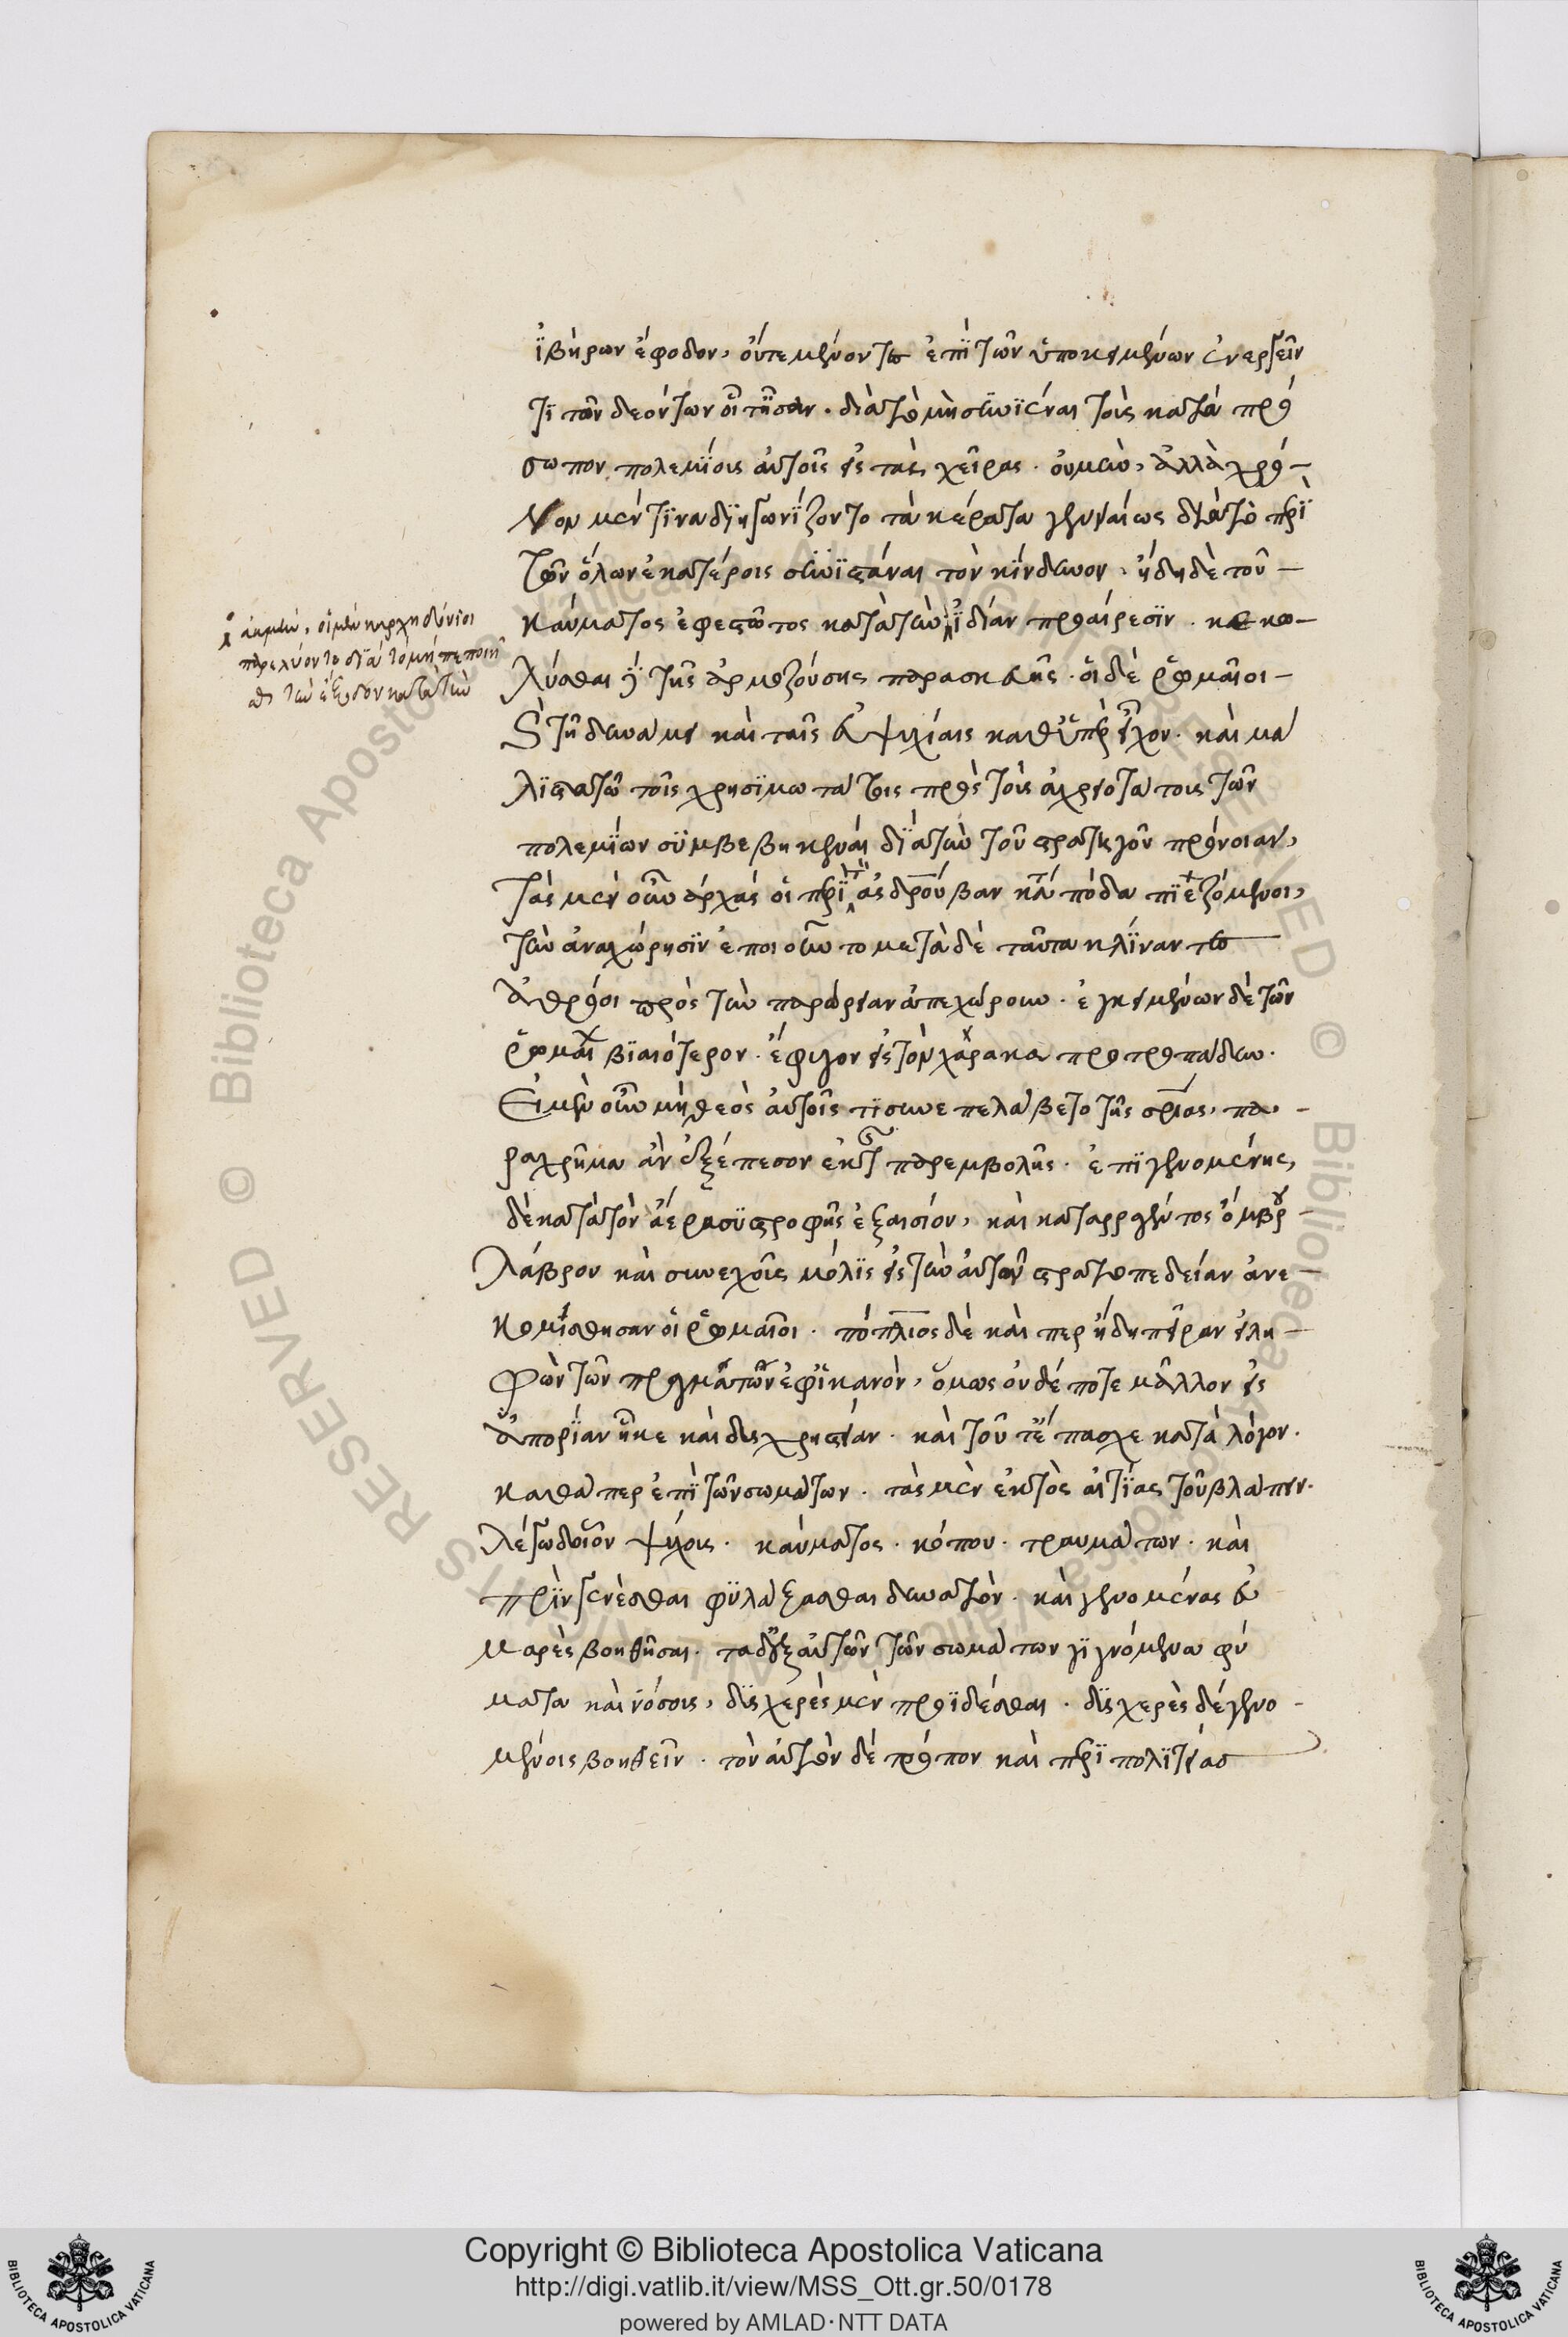 ἰβήρων ἔφοδον, οὔτε μένοντες ἐπὶ τῶν ὑποκειμένων ἐνεργεῖν
τι τῶν δεόντων οἷοί τ' ἦσαν. διὰ τὸ μὴ συνιέναι τοὺς κατὰ πρό
σωπον πολεμίους αὐτοῖς εἰς τὰς χεῖρας. οὐ μὴν, ἀλλὰ χρό-
νον μέν τινα διηγωνίζοντο τὰ κέρατα γενναίως διὰ τὸ περὶ
τῶν ὅλων ἑκατέροις συνιστάναι τὸν κίνδυνον. ἤδη δὲ τοῦ-
καύματος ἐφεστῶτος κατὰ τὴν ἰδίαν προαίρεσιν. κεκω-
λύσθαι δὲ τῆς ἁρμοζούσης παρασκευῆς. οἱ δὲ ῥωμαῖοι-
καὶ τῇ δυνάμει καὶ ταῖς εὐψυχίαις καθυπερεῖχον. καὶ μά
λιστα τῷ τοῖς χρησιμωτάτοις πρὸς τοὺς ἀχρειοτάτους τῶν
πολεμίων συμβεβηκέναι διὰ τὴν τοῦ στρατηγοῦ πρόνοιαν,
τὰς μὲν οὖν ἀρχὰς οἱ περὶ τὸν ἀσδρούβαν κατὰ πόδα πιεζόμενοι,
τὴν ἀναχώρησιν ἐποιοῦντο μετὰ δὲ ταῦτα κλίναντες
ἀθρόοι πρὸς τὴν παρώρειαν ἀπεχώρουν. ἐγκειμένων δὲ τῶν
ῥωμαίων βιαιότερον. ἔφυγον εἰς τὸν χάρακα προτροπάδην.
Εἰ μὲν οὖν μὴ θεὸς αὐτοῖς τις συνεπελάβετο τῆς σωτηρίας, πα-
ραχρῆμα ἂν ἐξέπεσον ἐκ τῆς παρεμβολῆς. ἐπιγενομένης
δὲ κατὰ τὸν ἀέρα συστροφῆς ἐξαισίου, καὶ καταρραγέντος ὄμβρου-
λάβρου καὶ συνεχοῦς μόλις εἰς τὴν αὐτῶν στρατοπεδείαν ἀνε-
κομίσθησαν οἱ ῥωμαῖοι. πόπλιος δὲ καὶ περ ἤδη πεῖραν εἰλη-
φὼς τῶν πραγμάτων ἐφ' ἱκανὸν, ὅμως οὐδέποτε μᾶλλον εἰς
ἀπορίαν ἧκε καὶ δυσχρηστίαν. καὶ τοῦτ' ἔπασχε κατὰ λόγον.
καθάπερ ἐπὶ τῶν σωμάτων. τὰς μὲν ἐκτὸς αἰτίας τοῦ βλάπτειν.
λέγω δ' οἷον ψύχους. καύματος. κόπου. τραυμάτων. καὶ
πρὶν γενέσθαι φυλάξασθαι δυνατὸν. καὶ γενομέναις εὐ
μαρὲς βοηθῆσαι. τὰ δ' ἐξ αὐτῶν τῶν σωμάτων γιγνόμενα φύ
ματα καὶ νόσους, δυσχερὲς μὲν προϊδέσθαι. δυσχερὲς δὲ γενο-
μένοις βοηθεῖν. τὸν αὐτὸν δὲ τρόπον καὶ περὶ πολιτείας
ἀκμὴν, οἱ μὲν καρχηδόνιοι
παρελύοντο διὰ τὸ μὴ πεποιῆ
σθαι τὴν ἔξοδον κατὰ τὴν
Copyright © Biblioteca Apostolica Vaticana
http://digi.vatlib.it/view/MSS_Ott.gr.50/0178
powered by AMLAD·NTT DATA